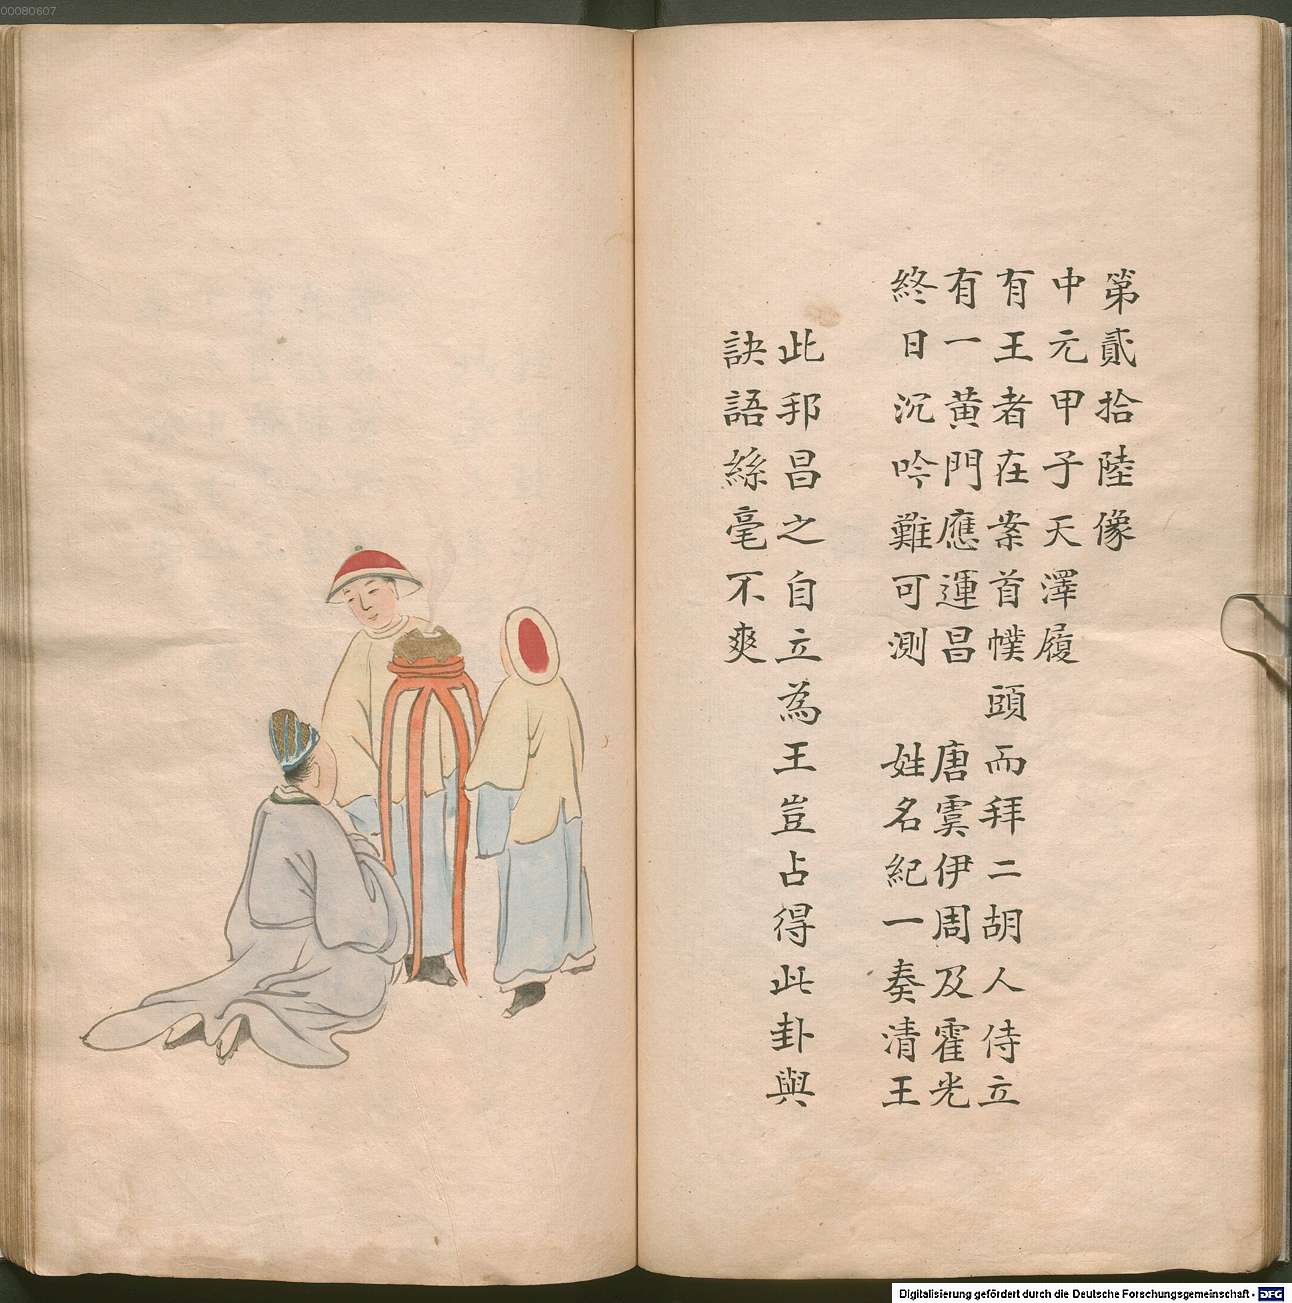 00080607
第貳拾陸像
中元甲子天澤履
有王者在案首幞頭而拜二胡人侍立
有一黃門應運昌　唐虞伊周及霍光
終日沉吟難可測　姓名紀一奏清王
此邦昌之自立為王豈占得此卦與
訣語絲毫不爽
Digitalisierung gefördert durch die Deutsche Forschungsgemeinschaft - DFG